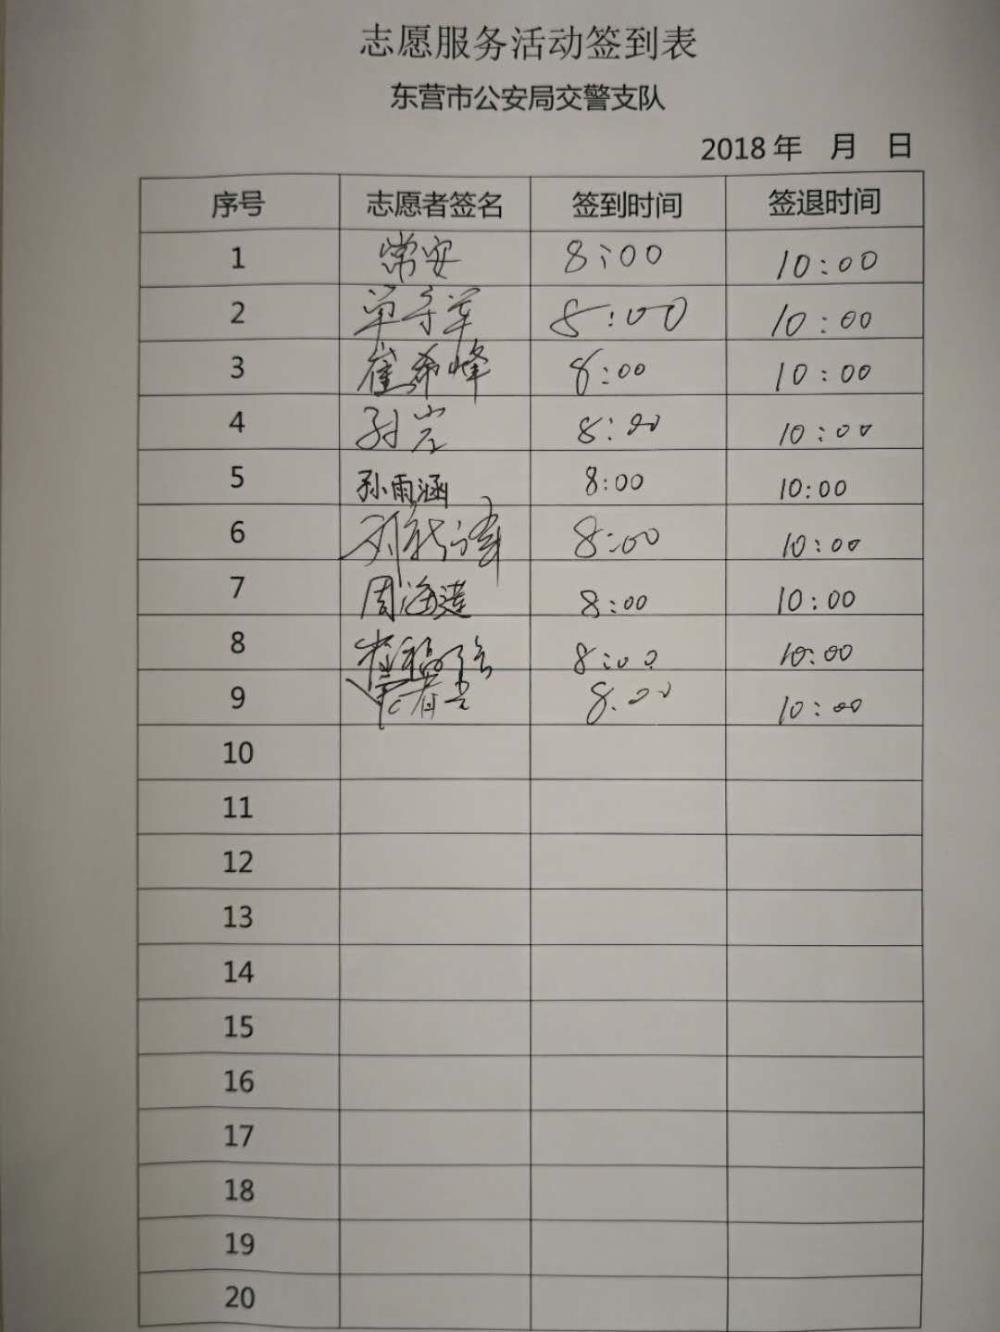 志愿服务活动签到表
东营市公安局交警支队
2018 年 月 日
序号 志愿者签名 签到时间 签退时间
1 常安 8:00 10:00
2 单守军 8:00 10:00
3 崔希峰 8:00 10:00
4 孙岩 8:00 10:00
5 孙雨涵 8:00 10:00
6 8:00 10:00
7 周海莲 8:00 10:00
8 8:00 10:00
9 8:00 10:00
10
11
12
13
14
15
16
17
18
19
20